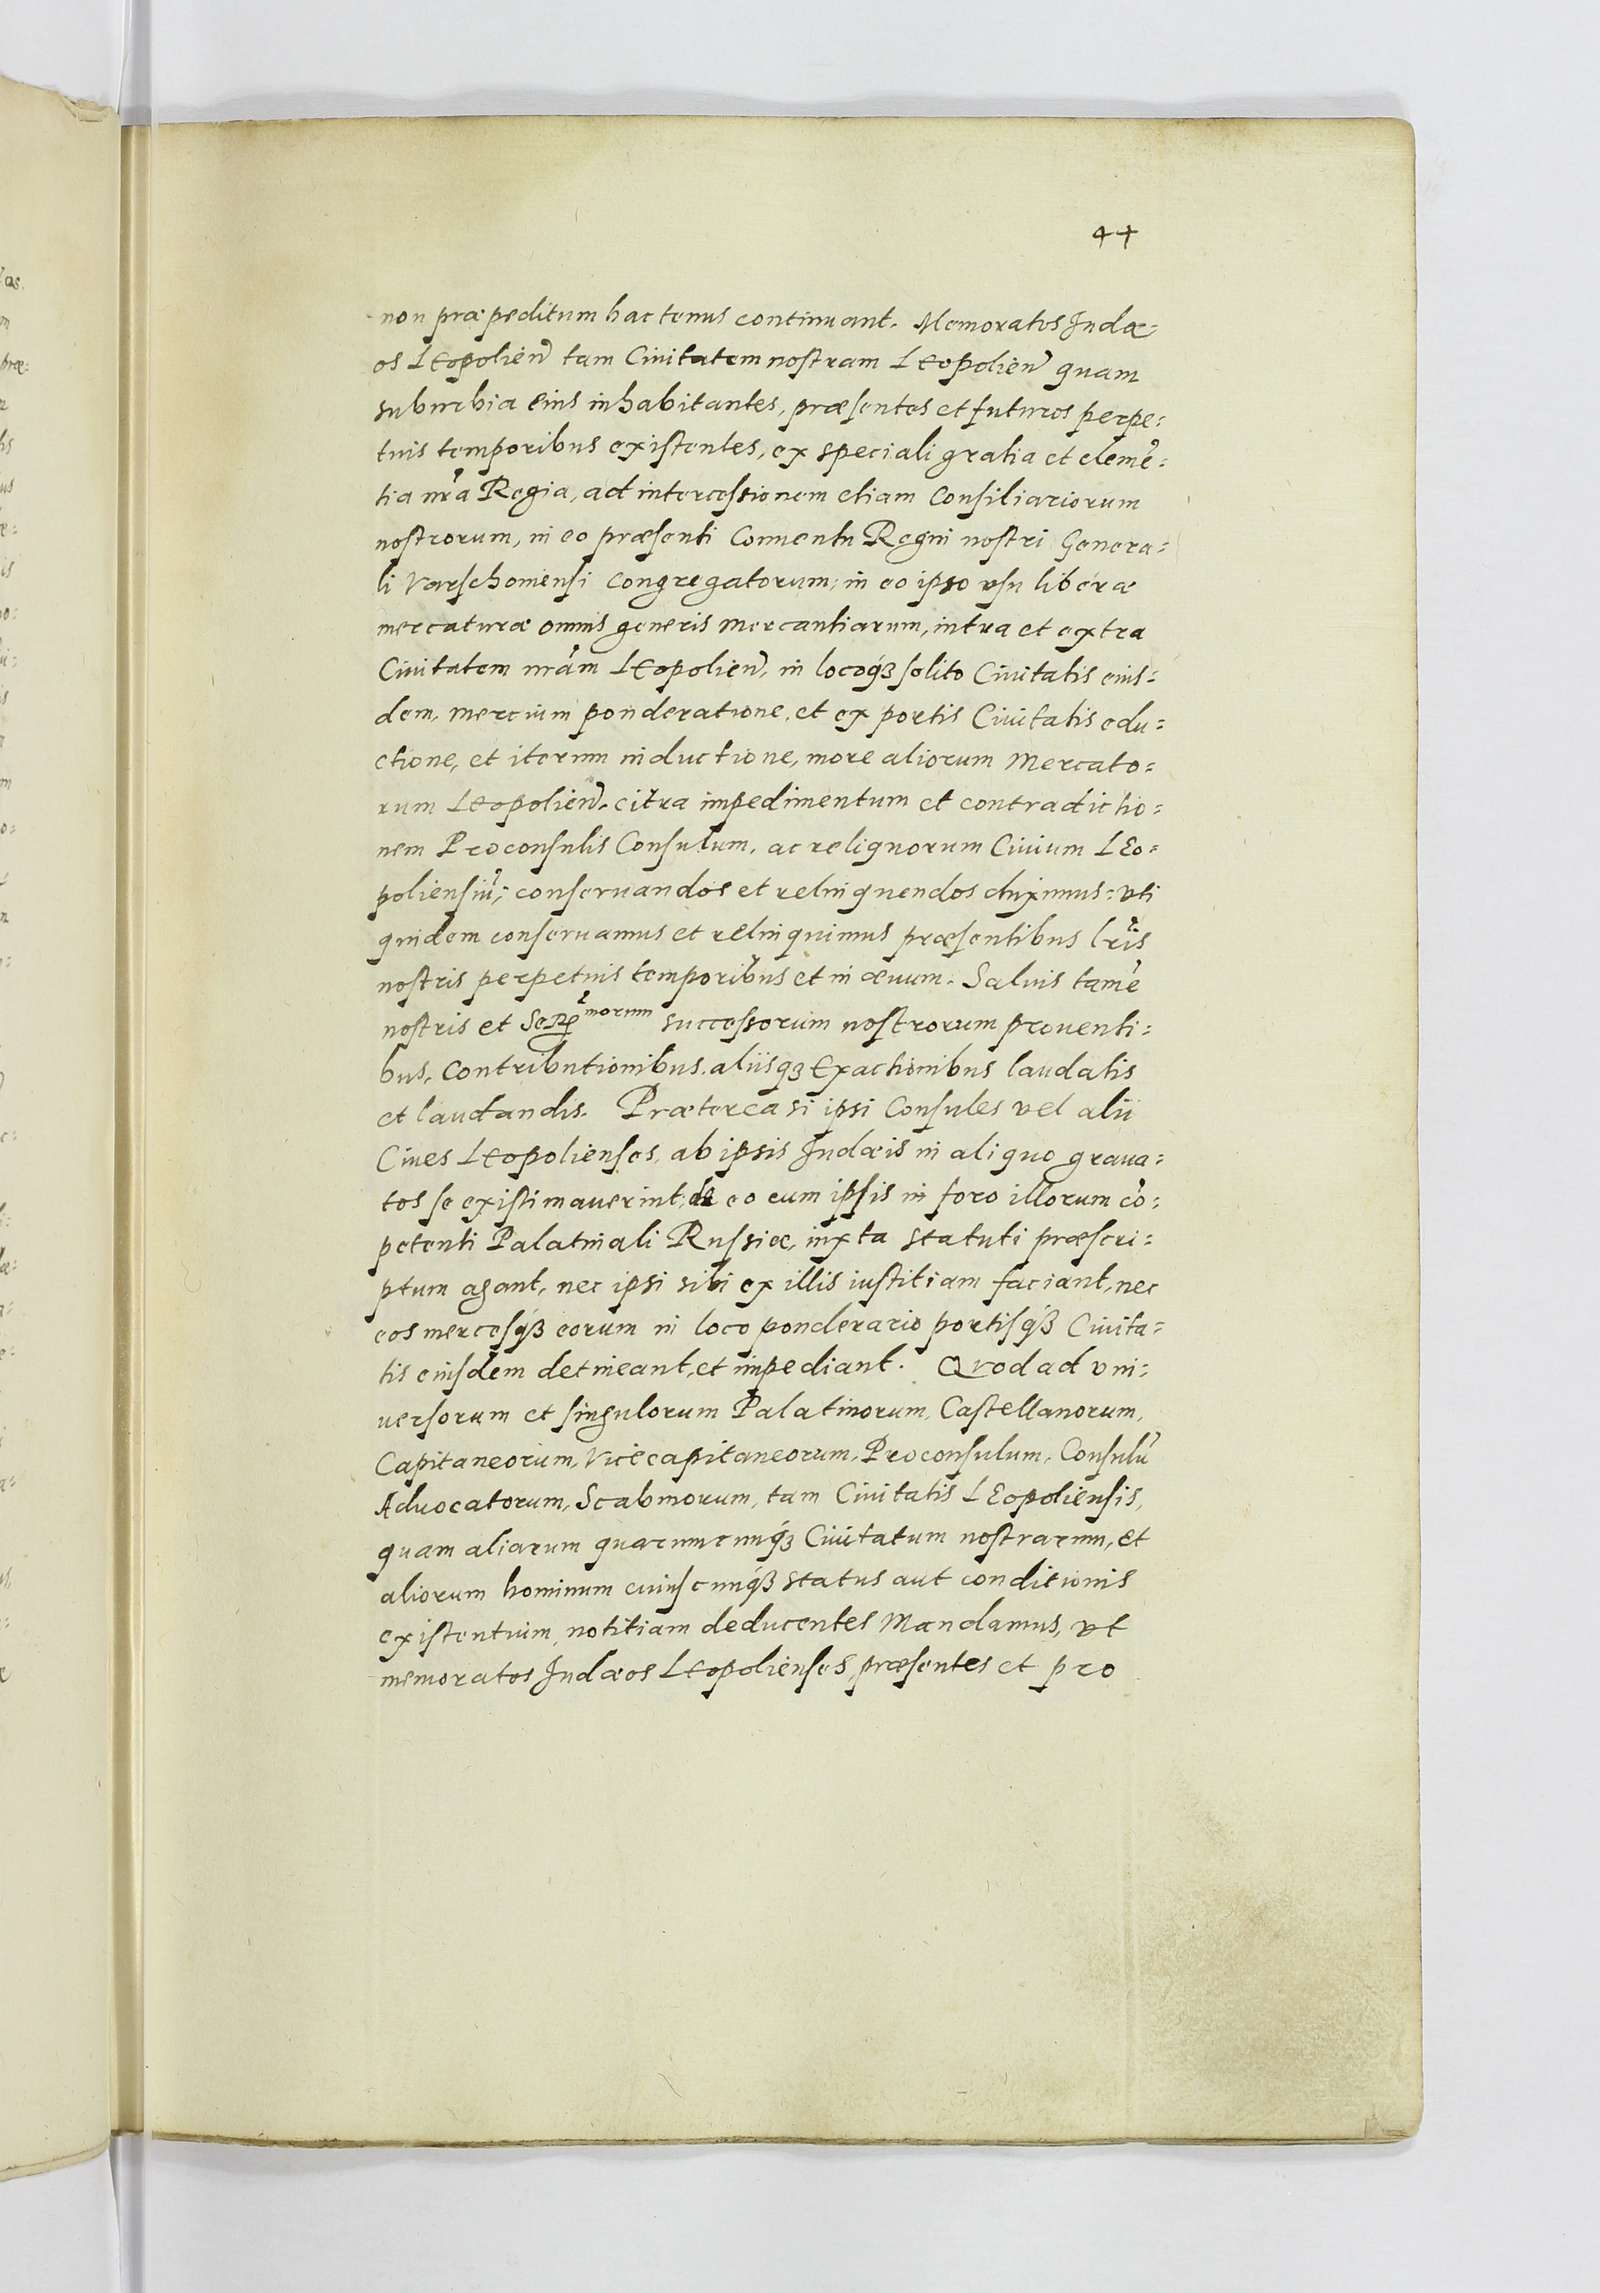 44
non præpeditum hactenus continuant. Memoratos Judæ=
os Leopolien̄ tam Ciuitatem nostram Leopolien̄ quam
suburbia eius inhabitantes, præsentes et futuros perpe=
tuis temporibus existentes, ex speciali gratia et clemē=
tia nrā Regia, ad intercessionem etiam Consiliariorum
nostrorum, in eo præsenti Conuentu Regni nostri Genera=
li Varschouiensi congregatorum; in eo ipso vsu liberæ
mercaturæ omnis generis mercantiarum, intra et extra
Ciuitatem nrām Leopolien̄, in locoqȝ solito Ciuitatis eius=
dem, mercium ponderatione, et ex portis Ciuitatis edu=
ctione, et iterum inductione, more aliorum Mercato=
rum Leopolien̄. citra impedimentum et contradictio=
nem Proconsulis Consulum, ac reliquorum Ciuium Leo=
poliensiū; conseruandos et relinquendos duximus: vti
quidem conseruamus et relinquimus præsentibus lrīs
nostris perpetuis temporibus et in æuum. Saluis tamē
nostris et Serē morum successorum nostrorum prouenti=
bus, contributionibus, aliisqȝ Exactionibus laudatis
et laudandis. Præterea si ipsi Consules vel alii
Ciues Leopolienses, ab ipsis Judæis in aliquo graua=
tos se existimauerint, de eo cum ipsis in foro illorum cō=
petenti Palatinali Russiæ, iuxta statuti præscri=
ptum agant, nec ipsi sibi ex illis iustitiam faciant, nec
eos mercesqȝ eorum in loco ponderario portisqȝ Ciuita=
tis eiusdem detineant, et impediant. Quod ad vni=
uersorum et singulorum Palatinorum, Castellanorum,
Capitaneorum, Vicecapitaneorum, Proconsulum, Consulū
Aduocatorum, Scabinorum, tam Ciuitatis Leopoliensis,
quam aliarum quarumcunqȝ Ciuitatum nostrarum, et
aliorum hominum cuiuscunqȝ status aut conditionis
existentium, notitiam deducentes Mandamus, vt
memoratos Judæos Leopolienses, præsentes et pro